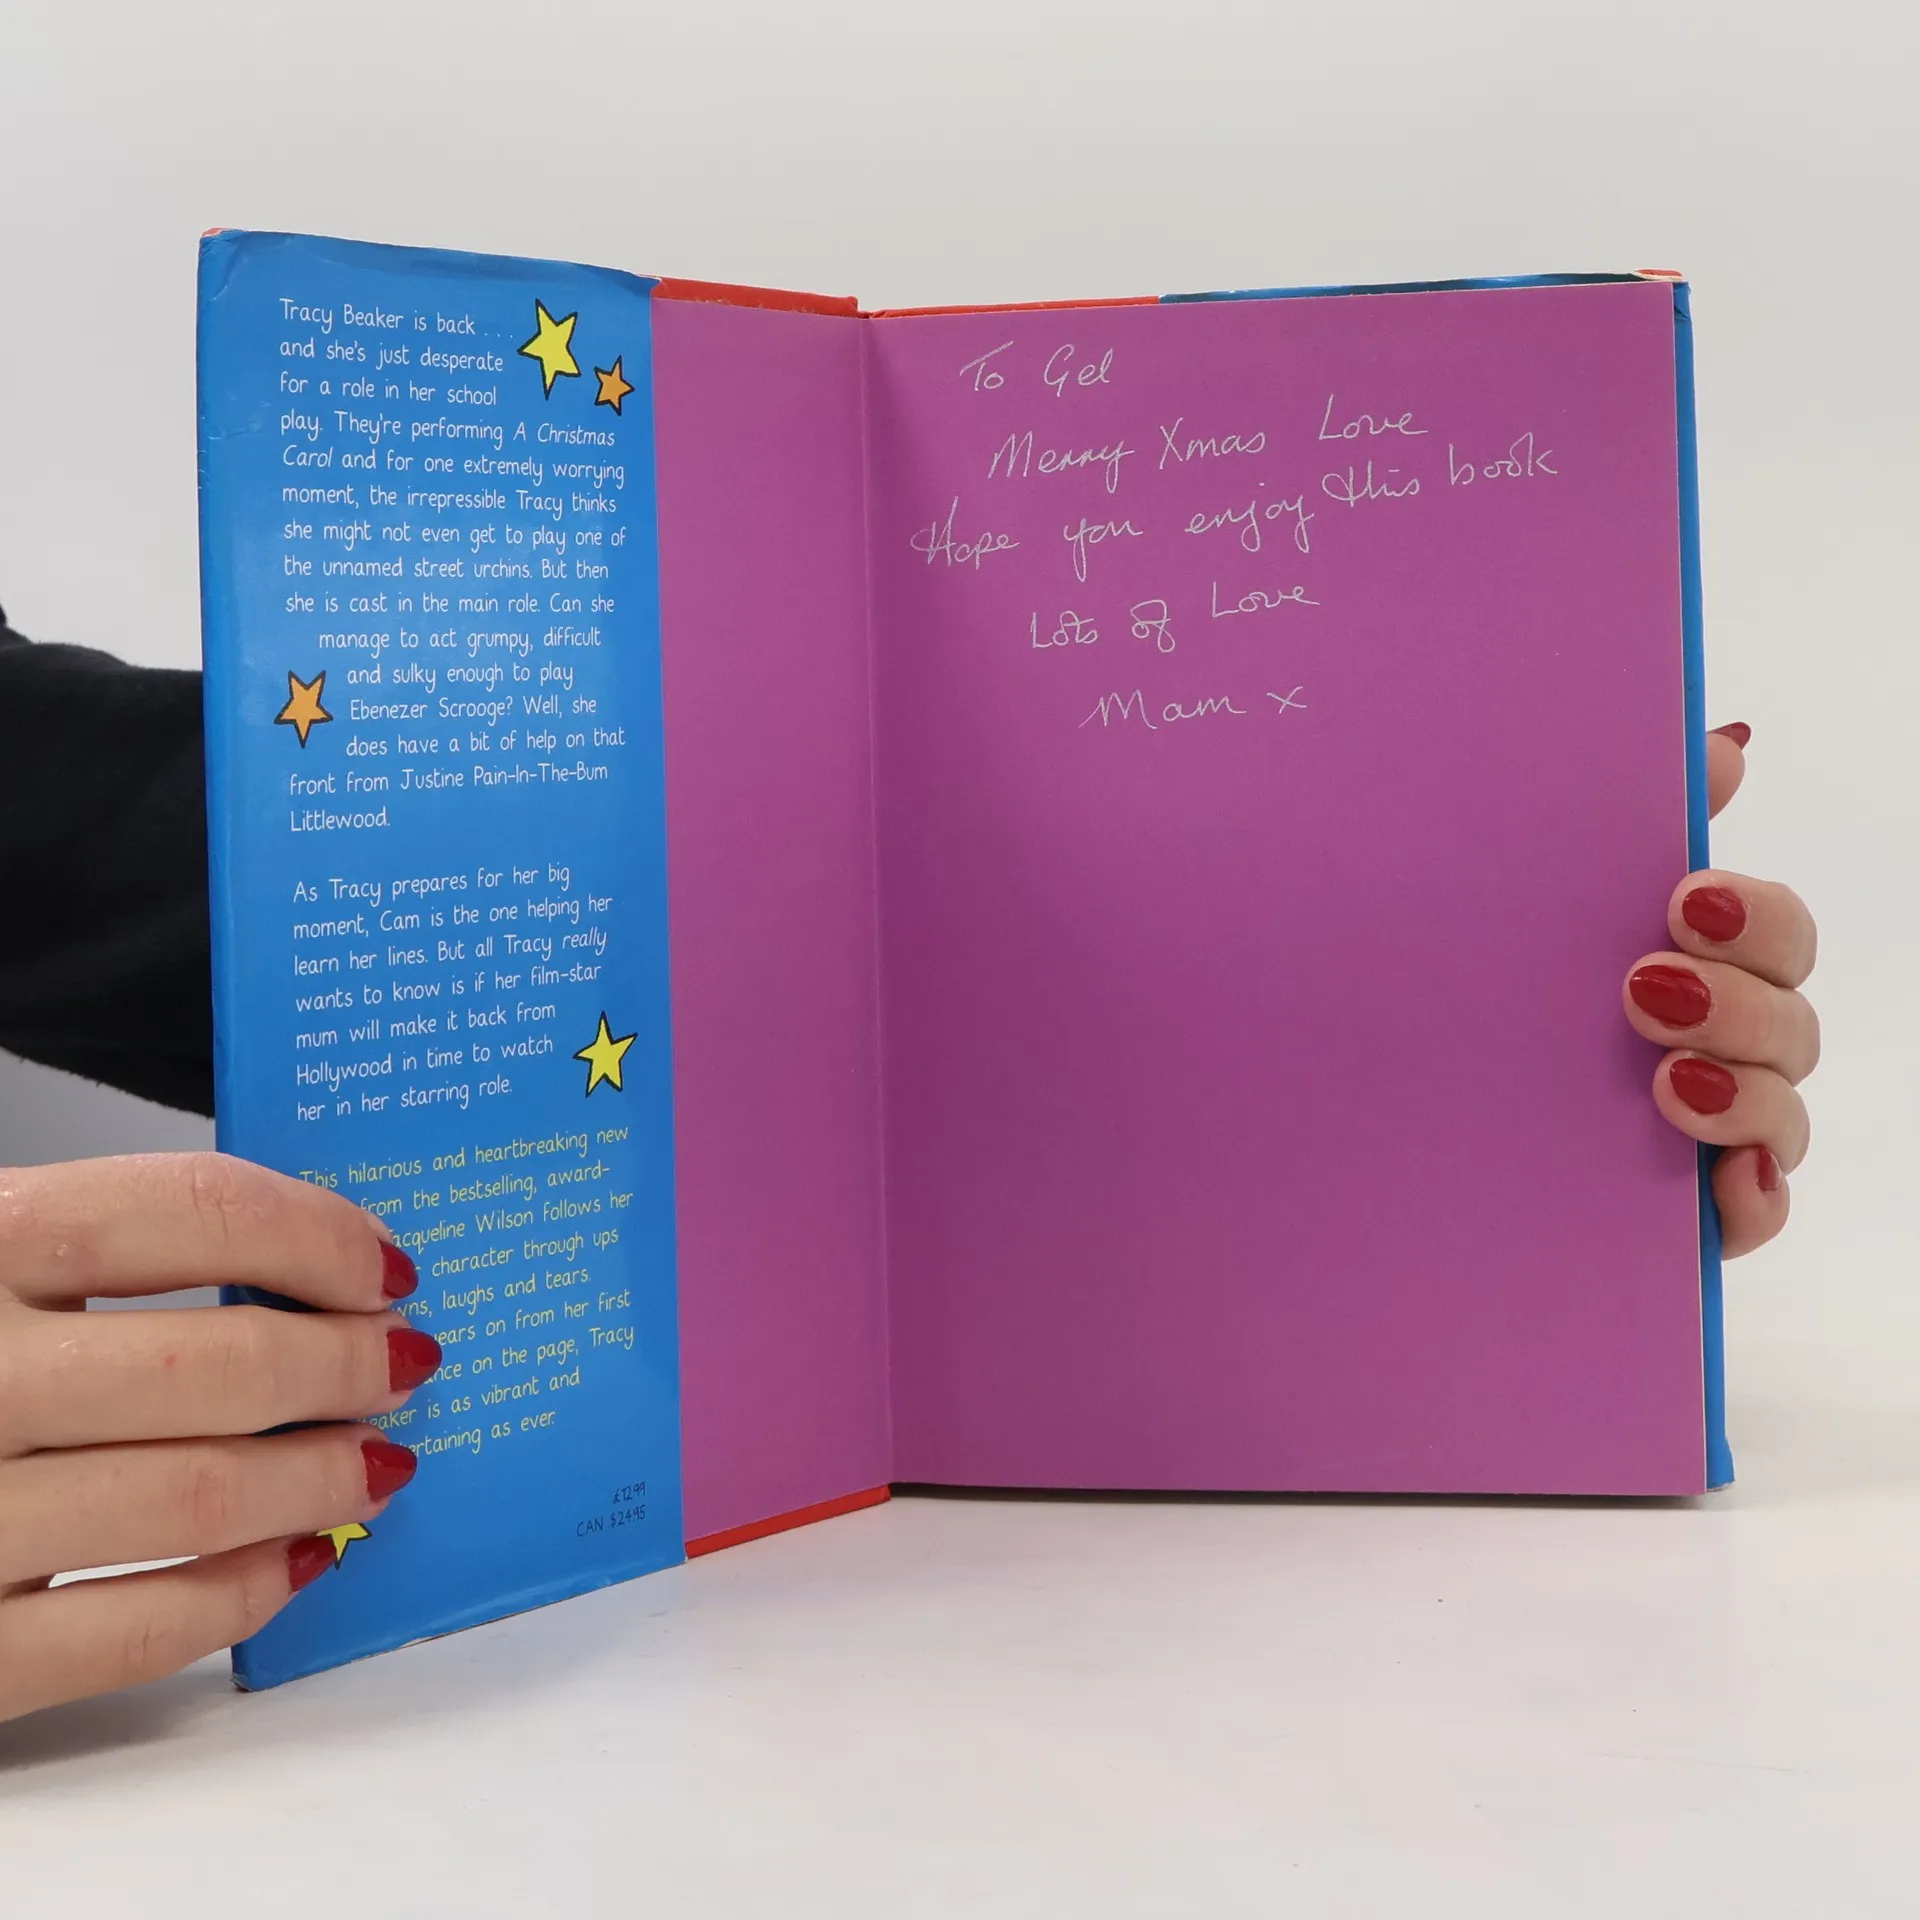 Tracy Beaker is back . . .
and she's just desperate
for a role in her school
play. They're performing A Christmas
Carol and for one extremely worrying
moment, the irrepressible Tracy thinks
she might not even get to play one of
the unnamed street urchins. But then
she is cast in the main role. Can she
manage to act grumpy, difficult
and sulky enough to play
Ebenezer Scrooge? Well, she
does have a bit of help on that
front from Justine Pain-In-The-Bum
Littlewood.
As Tracy prepares for her big
moment, Cam is the one helping her
learn her lines. But all Tracy really
wants to know is if her film-star
mum will make it back from
Hollywood in time to watch
her in her starring role.
This hilarious and heartbreaking new
from the bestselling, award-
acqueline Wilson follows her
character through ups
wns, laughs and tears.
years on from her first
ance on the page, Tracy
eaker is as vibrant and
ertaining as ever.
£12.99
CAN $24.95
To Gel
Merry Xmas Love
Hope you enjoy this book
Lots of Love
Mam x